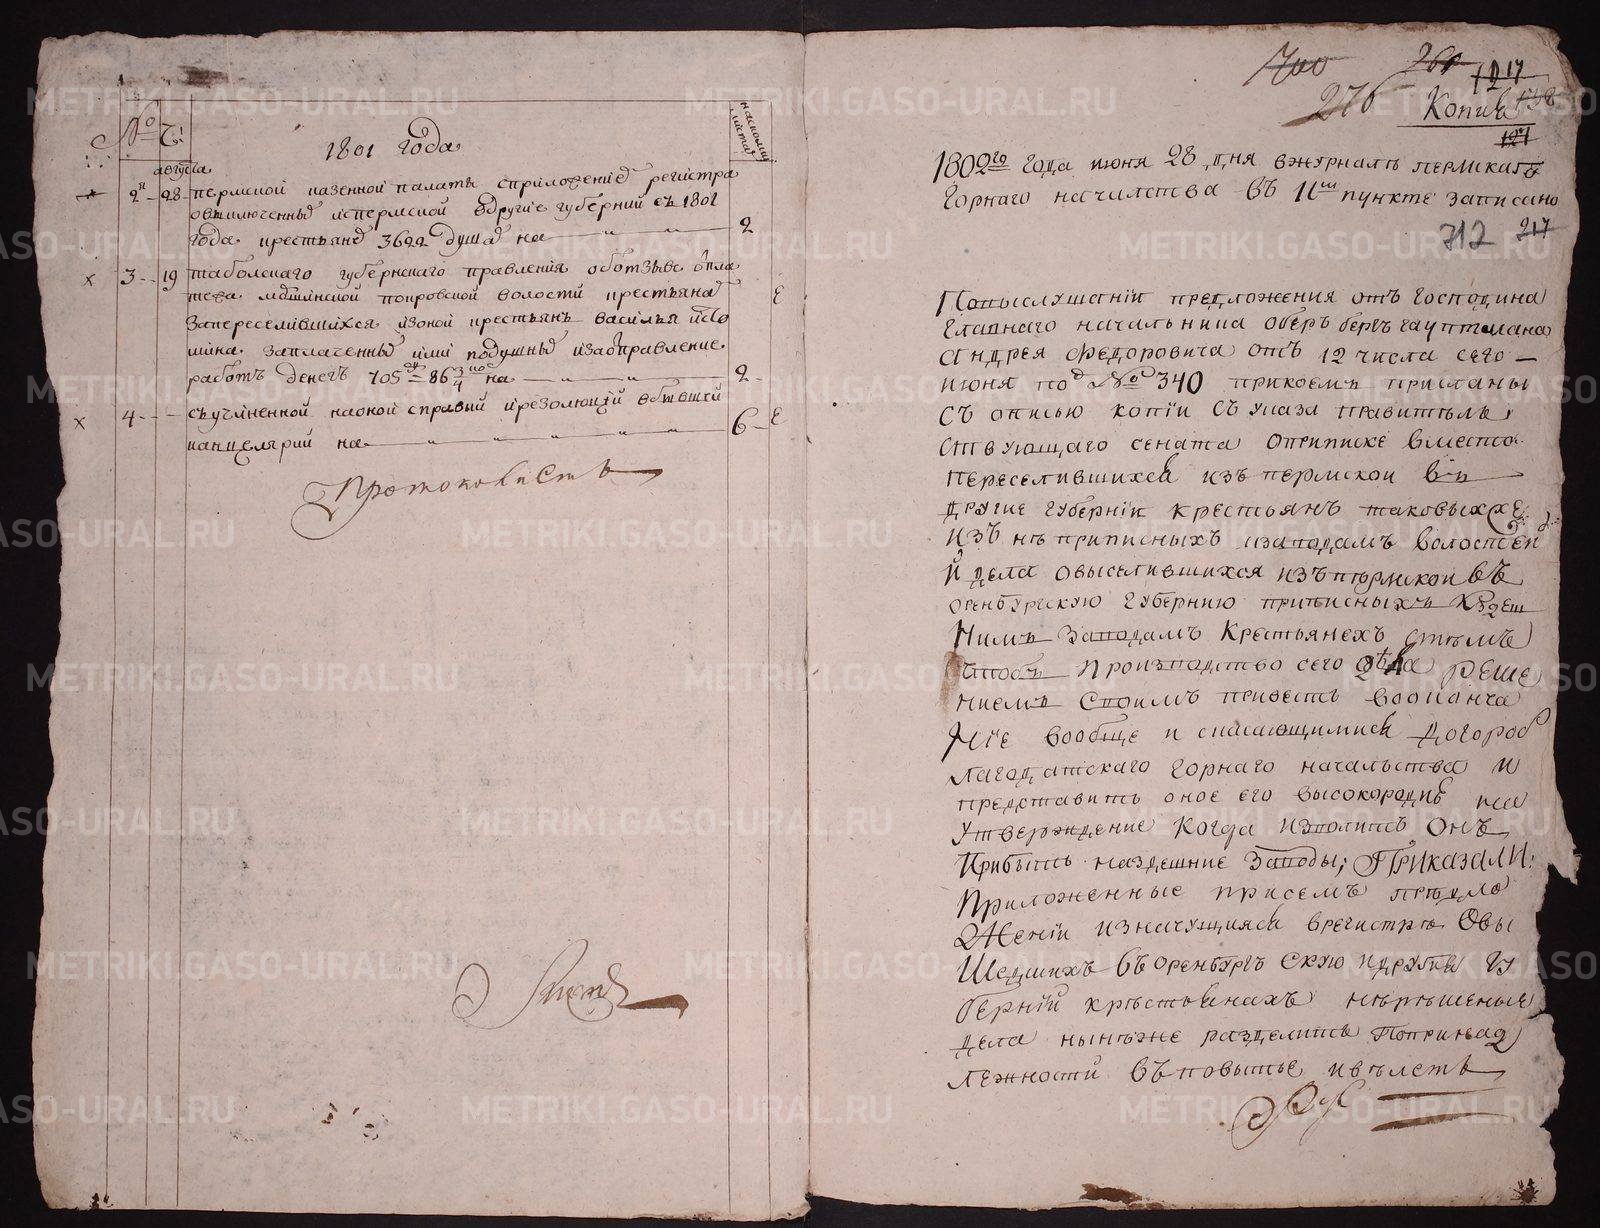 № Ч:
на сколки листах
1801 года
августа
2й 28 пермской казенной палаты сприложениемъ регистра
овыключенныхъ испермской вдругие губернии съ 1801
года крестьянъ 3622 душахъ на 2
3 19 таболскаго губернскаго правления оботзыве опла
покровской волости крестьяна
запереселившихся изоной крестьянъ василья
заплаченныхъ ими подушныхъ изаоправление
работъ денегъ 705 86 3/4 на 2
4 сучиненной наоной справки ирезолюции вбывшей
канцелярии на 6
Протоколистъ
260
1217
276
Копия
1802го года июня 28 дня вжурналѣ пермскаго
Горнаго началства въ 11м пункте записано
712 217
Повыслушании предложения отъ Господина
Главнаго начальника оберъ бергъ гауптмана
Андрея Федоровича отъ 12 числа сего
июня под № 340 прикоемъ присланы
съ описью копии съ указа правителъ
ствующаго сената оприписке вместо
переселившихся изъ пермской въ
другие губернии крестьянъ таковыхже
изъ неприписныхъ кзаводамъ волостей
и дела овыселившихся изъ пермской въ
оренбургскую губернию приписныхъ кздеш
нимъ заводамъ Крестьянехъ стемъ
чтобъ производство сего дела реше
ниемъ своимъ привесть вокончa
ние вообще и скасающимися догороб
лагодатскаго горнаго начальства и
представить оное его высокородию на
утверждение когда изволитъ онъ
прибыть наздешние заводы; Приказали:
Приложенные присемъ предло
жении изначущияся врегистре овы
шедшихъ въ оренбургъ скую идругие гу
бернии крестьянахъ нерешеные
дела нынеже разделить попринад
лежности въ повытье